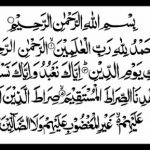 بِسْمِ اللهِ الرَّحْمٰنِ الرَّحِيْمِ
حَمْدُ لِلّٰهِ رَبِّ الْعٰلَمِيْنَ الرَّحْمٰنِ
يَوْمِ الدِّيْنِ اِيَّاكَ نَعْبُدُ وَاِيَّاكَ نَسْ
دِنَا الصِّرَاطَ الْمُسْتَقِيْمَ صِرَاطَ الَّذِيْنَ
عَلَيْهِمْ غَيْرِ الْمَغْضُوْبِ عَلَيْهِمْ وَلَا الضَّآلِّيْنَ